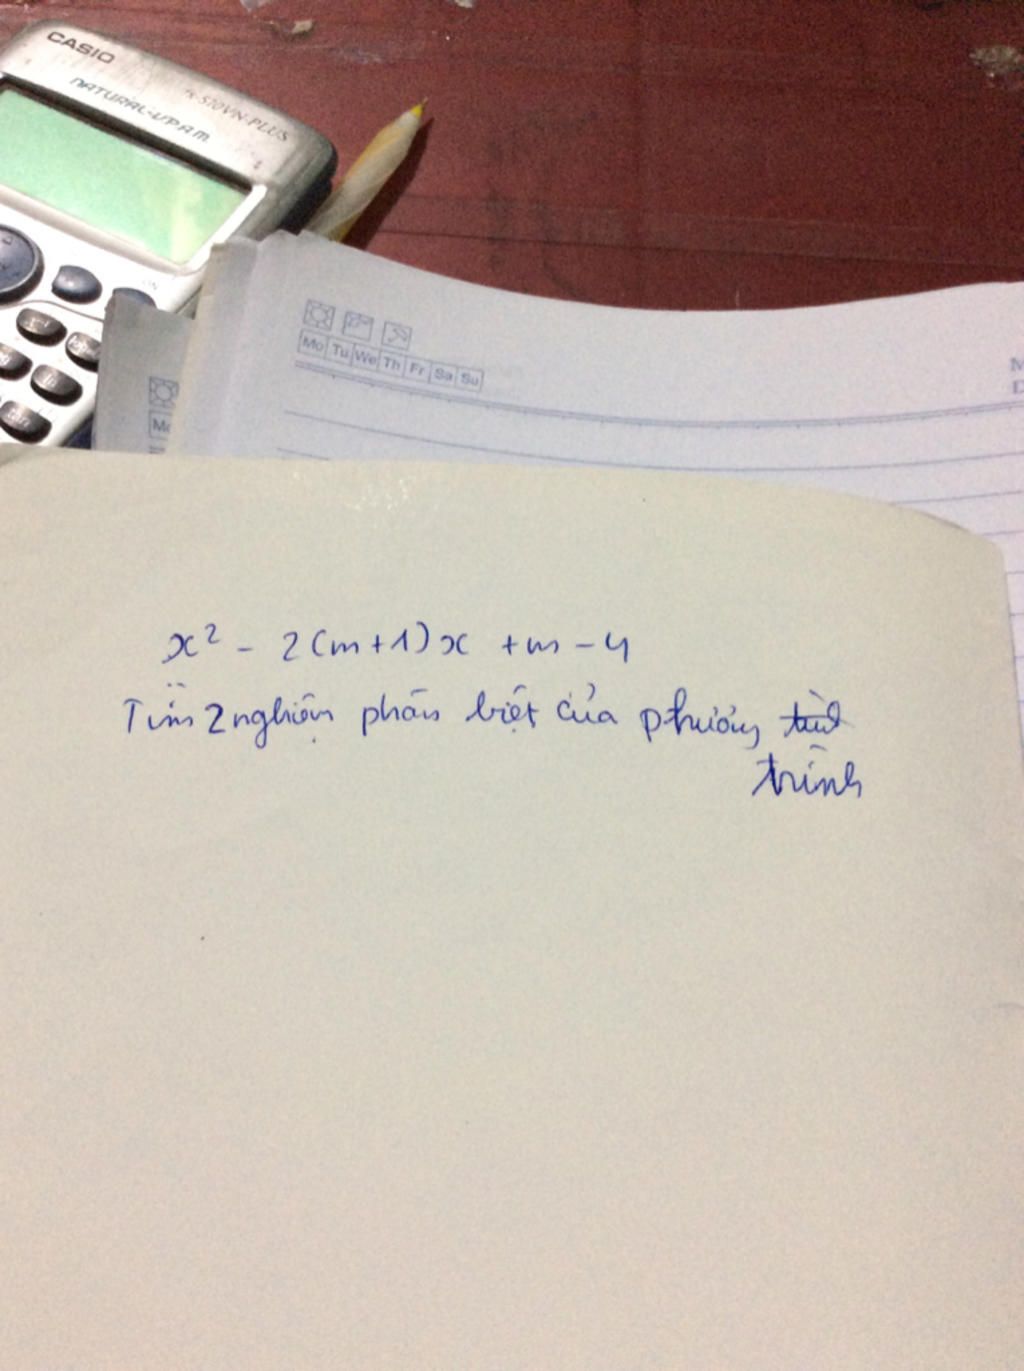 CASIO
fx-570VN PLUS
NATURAL-V.P.A.M.
ON
Mo Tu We Th Fr Sa Su
Mo
x² - 2(m+1)x + m - 4
Tìm 2 nghiệm phân biệt của phương
trình